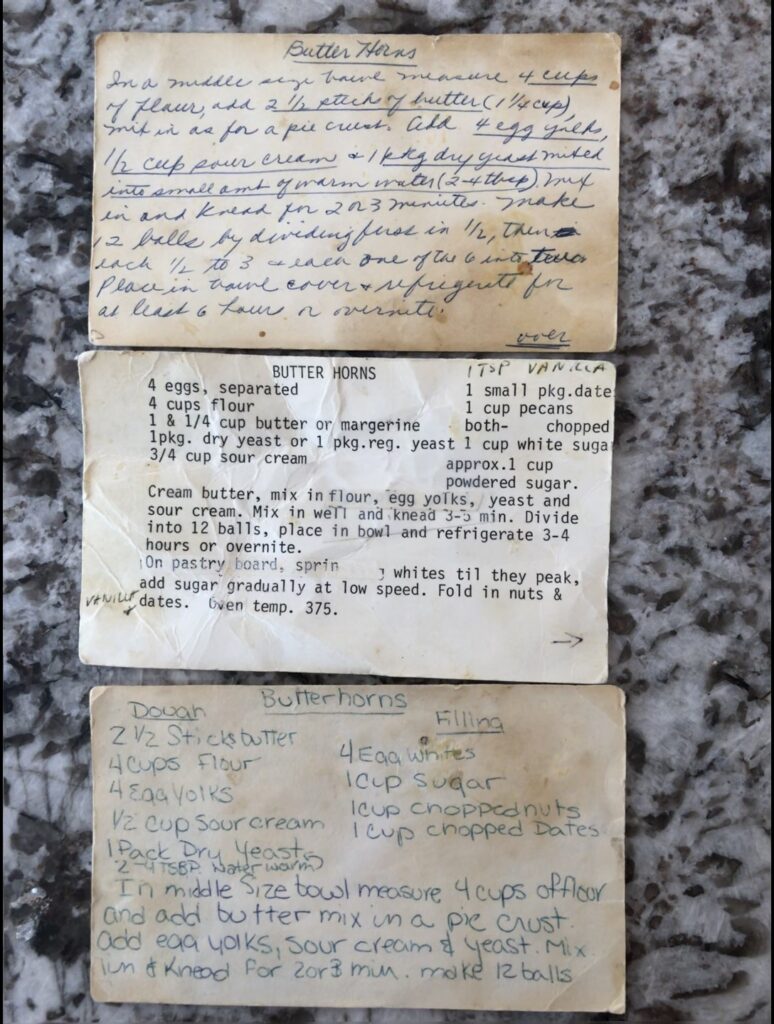 Butter Horns
In a middle size bowl measure 4 cups
of flour, add 2 1/2 stick of butter (1 1/4 cup),
mix in as for a pie crust. Add 4 egg yolks,
1/2 cup sour cream & 1 pkg dry yeast mixed
into small amt of warm water (2-4 tbsp). Mix
in and knead for 2 or 3 minutes. Make
12 balls by dividing first in 1/2, then
each 1/2 to 3 & each one of the 6 into two
Place in bowl cover & refrigerate for
at least 6 hours or overnite.
over
BUTTER HORNS 1 TSP VANILLA
4 eggs, separated 1 small pkg.date
4 cups flour 1 cup pecans
1 & 1/4 cup butter or margerine both- chopped
1pkg. dry yeast or 1 pkg.reg. yeast 1 cup white sugar
3/4 cup sour cream approx.1 cup
powdered sugar.
Cream butter, mix in flour, egg yolks, yeast and
sour cream. Mix in well and knead 3-5 min. Divide
into 12 balls, place in bowl and refrigerate 3-4
hours or overnite.
On pastry board, sprin whites til they peak,
add sugar gradually at low speed. Fold in nuts &
VANILLA dates. Oven temp. 375.
Butterhorns
Dough Filling
2 1/2 Sticks butter 4 Egg Whites
4 cups Flour 1 Cup Sugar
4 Egg Yolks 1 Cup chopped nuts
1/2 cup Sour cream 1 Cup chopped Dates
1 Pack Dry Yeast
2-4 TSBP Water warm
In middle Size bowl measure 4 cups of flour
and add butter mix in a pie crust.
add egg yolks, Sour cream & yeast. Mix
iun & Knead for 2 or 3 min. make 12 balls